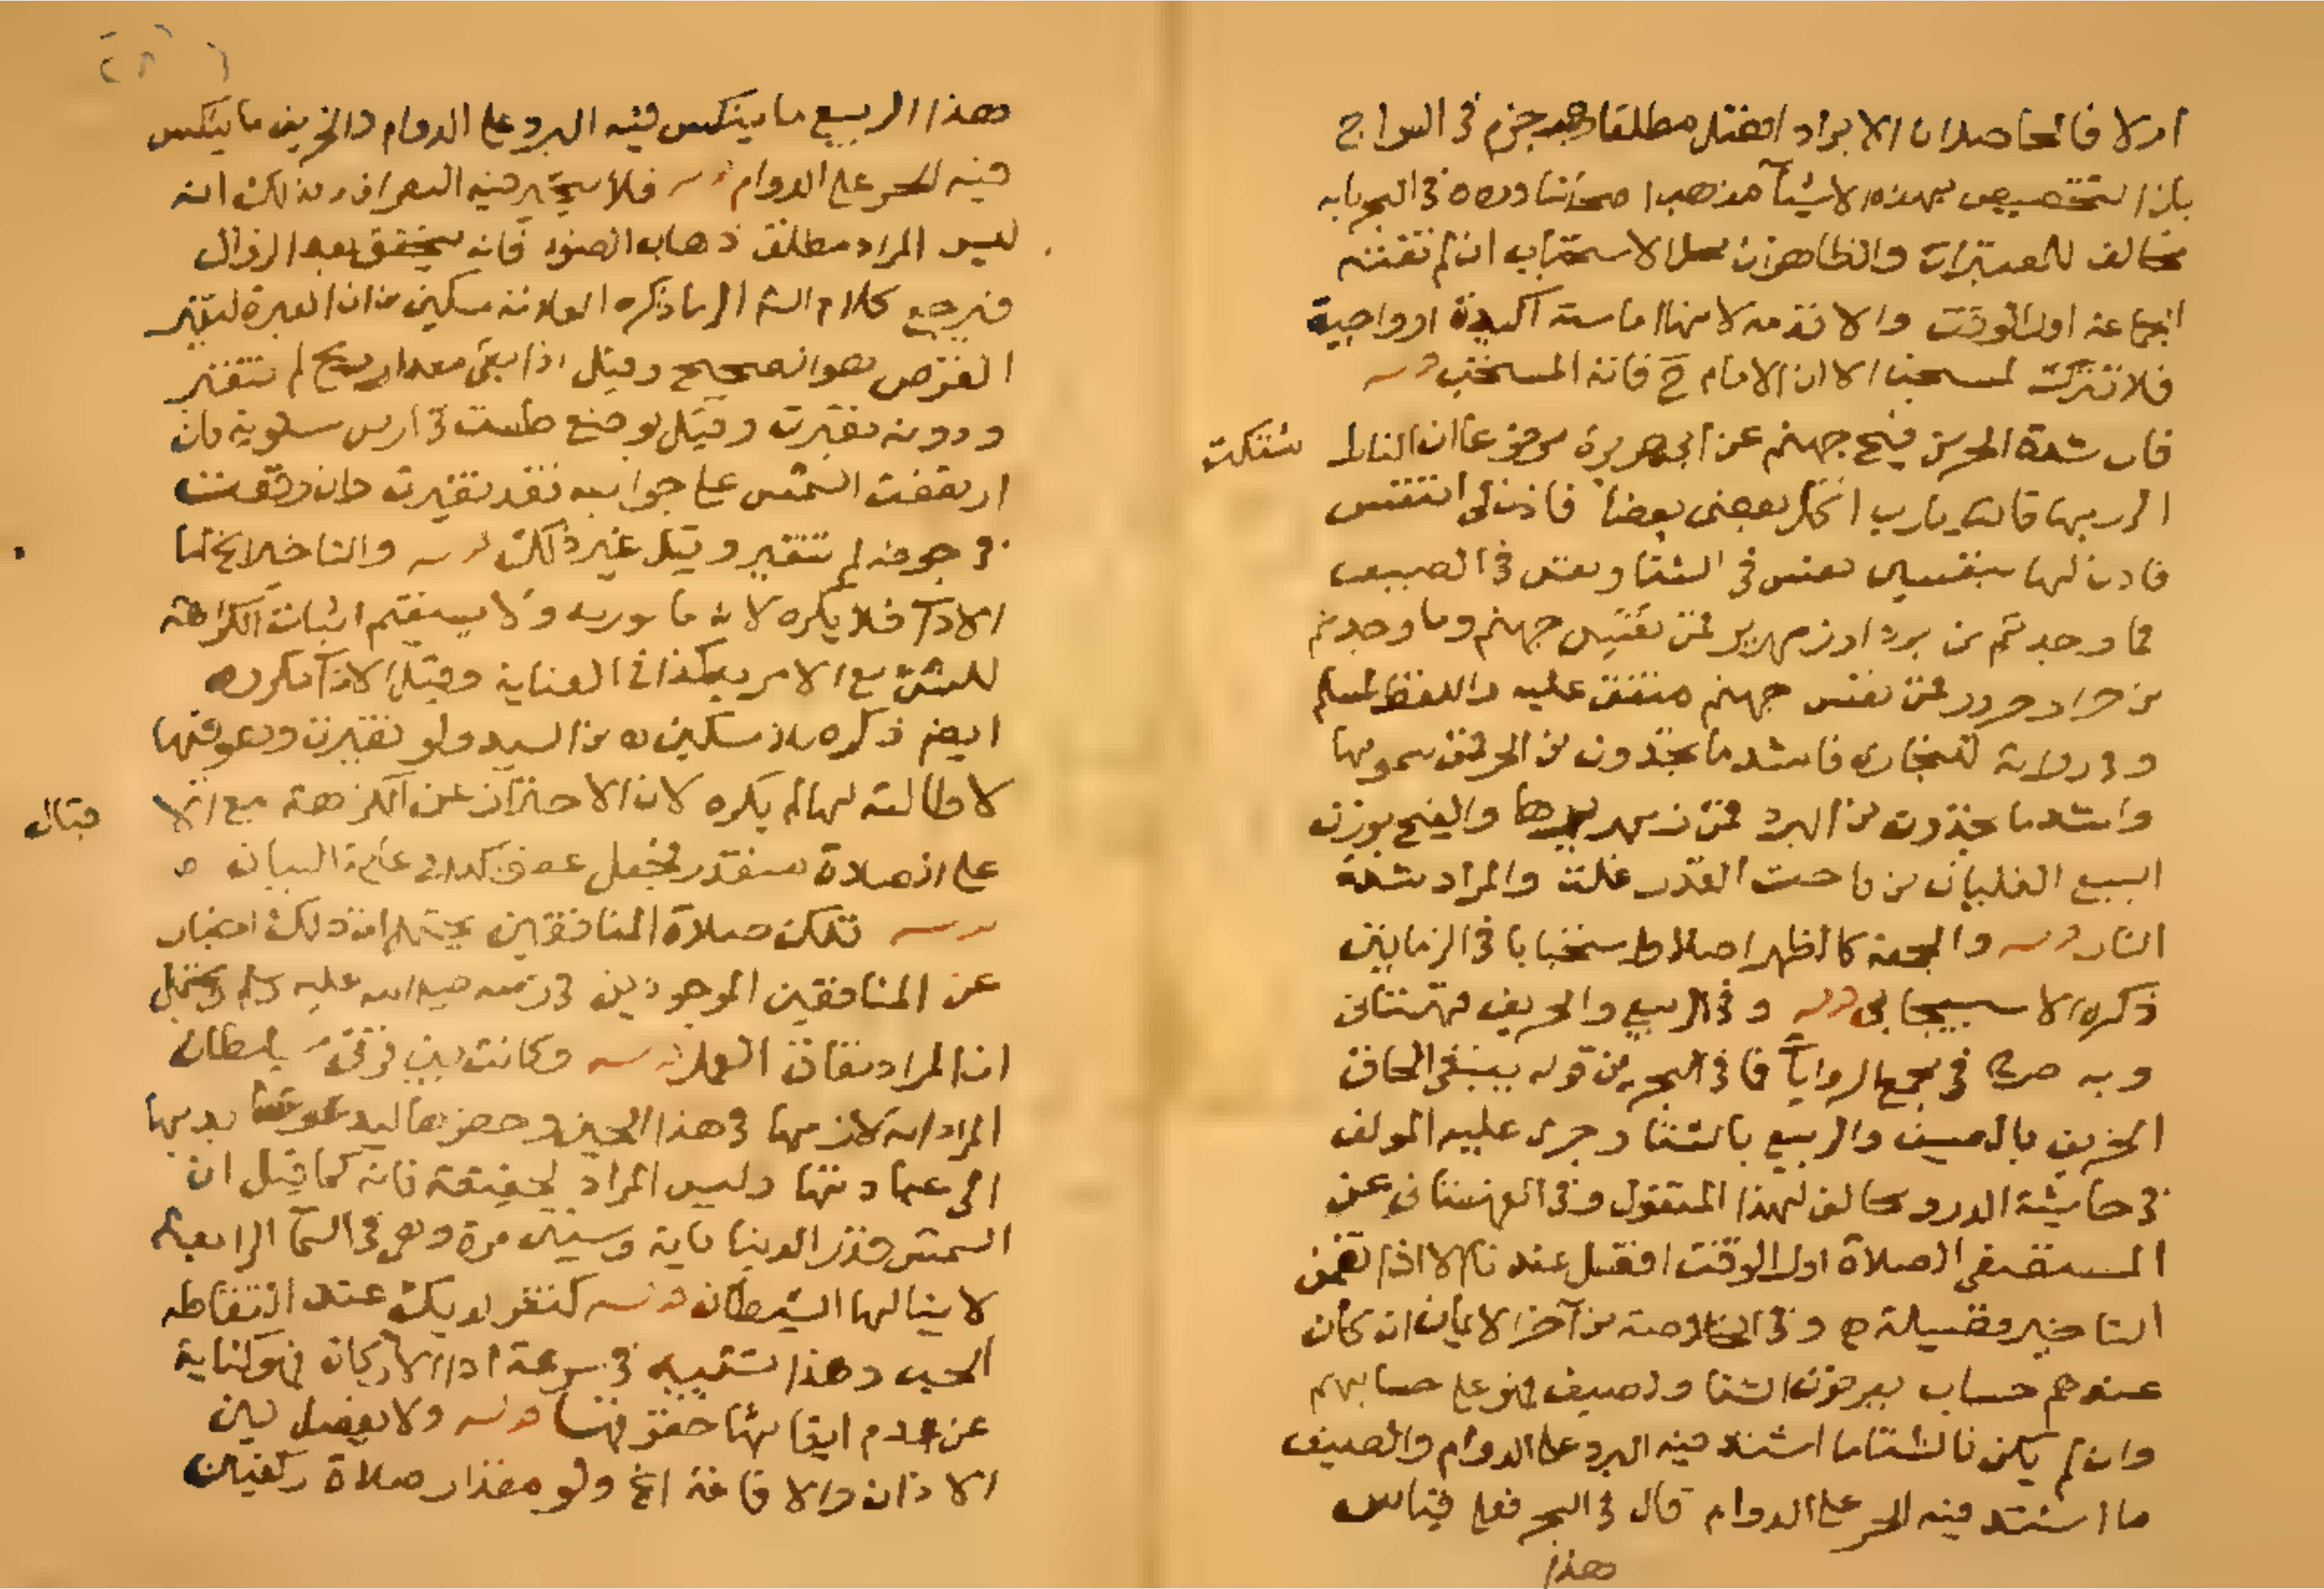 اولا فالحاصل ان الابراد افضل مطلقا وقد جزم في السراج
بان التخصيص بهذه الاشيآ مذهب اصحابنا ورده في البحر بانه
مخالف للمعتبرات والظاهر ان محل الاستحباب ان لم تفته
الجماعة اول الوقت والا قدمه لانها اما سنة اكيدة او واجبة
فلا تترك لمستحب الا ان الامام ح فاته المستحب قوله
فان شدة الحر من فيح جهنم عن ابي هريرة مرفوعا ان النار
شتكت
الى ربها قالت يارب اكل بعضي بعضا فاذن لي اتنفس
فاذن لها بنفسين نفس في الشتا ونفس في الصيف
فما وجدتم من برد او زمهرير فمن نفس جهنم وما وجدتم
من حر او حرور فمن نفس جهنم متفق عليه واللفظ لمسلم
وفي رواية للبخاري فاشد ما تجدون من الحر فمن سمومها
واشد ما تجدون من البرد فمن زمهريرها والفيح بوزن
البيع الغليان من فاحت القدر غلت والمراد شدة
النار قوله والجمعة كالظهر اصلا واستحبابا في الزمانين
ذكره الاسبيجابي قوله وفي الربيع والخريف قهستاني
وبه صرح في مجمع الروايآ فما في البحر من قوله ينبغي الحاق
الخريف بالصيف والربيع بالشتا وجرى عليه المولف
في حاشية الدرر مخالف لهذا المنقول وفي القهستاني عن
المستصفى الصلاة اول الوقت افضل عندنا الا اذا تضمن
التاخير فضيلة ه وفي الخلاصة من آخر الايمان ان كان
عندهم حساب يعرفون الشتا والصيف فهو على حسابهم
وان لم يكن فالشتا ما اشتد فيه البرد على الدوام والصيف
ما اشتد فيه الحر على الدوام قال في البحر فعلى قياس
هذا
هذا الربيع ما ينكسر فيه البرد على الدوام والخريف ما ينكسر
فيه الحر على الدوام قوله فلا يتحير فيه البصر افاد بذلك انه
ليس المراد مطلق ذهاب الضوء فانه يتحقق بعد الزوال
فيرجع كلام الش الى ما ذكره العلامة مسكين من ان العبرة لتغير
القرص هو الصحيح وقيل اذا بقي مقدار رمح لم تتغير
ودونه تغيرت وقيل يوضع طست في ارض مستوية فان
ارتفعت الشمس على جوانبه فقد تغيرت وان وقعت
في جوفه لم تتغير وقيل غير ذلك قوله والتاخير لا يخ اما
الادآ فلا يكره لانه مامور به ولا يستقيم اثبات الكراهة
للشئ مع الامر به كذا في العناية وقيل الادآ مكروه
ايضم ذكره ملا مسكين ه من السيد ولو تغيرت وهو فيها
لاطالته لها لم يكره لان الاحتراز عن الكراهة مع الا
قبال
على الصلاة متعذر فجعل عفوا كذا في غاية البيان ه
قوله تلك صلاة المنافقين يحتمل ان ذلك اخبار
عن المنافقين الموجودين في زمنه صلى الله عليه وسلم ويحتمل
ان المراد نفاق العمل قوله وكانت بين قرني شيطان
المراد انه لازمها في هذا الحين وحضرها ليدعو عبدتها
الى عبادتها وليس المراد الحقيقة فانه كما قيل ان
الشمس قدر الدنيا ماية وستين مرة وهي في السمآ الرابعة
لا ينالها الشيطان قوله كنقر الديك عند التقاطه
الحب وهذا تشبيه في سرعة ادا الاركان فهو كناية
عن عدم ايفائها حقوقها قوله ولا يفصل بين
الاذان والاقامة الخ ولو مقدار صلاة ركعتين